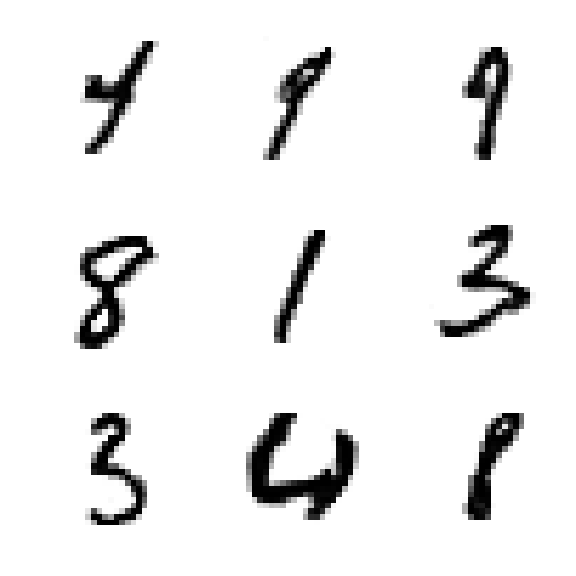 4 9 9
8 1 3
3 4 8